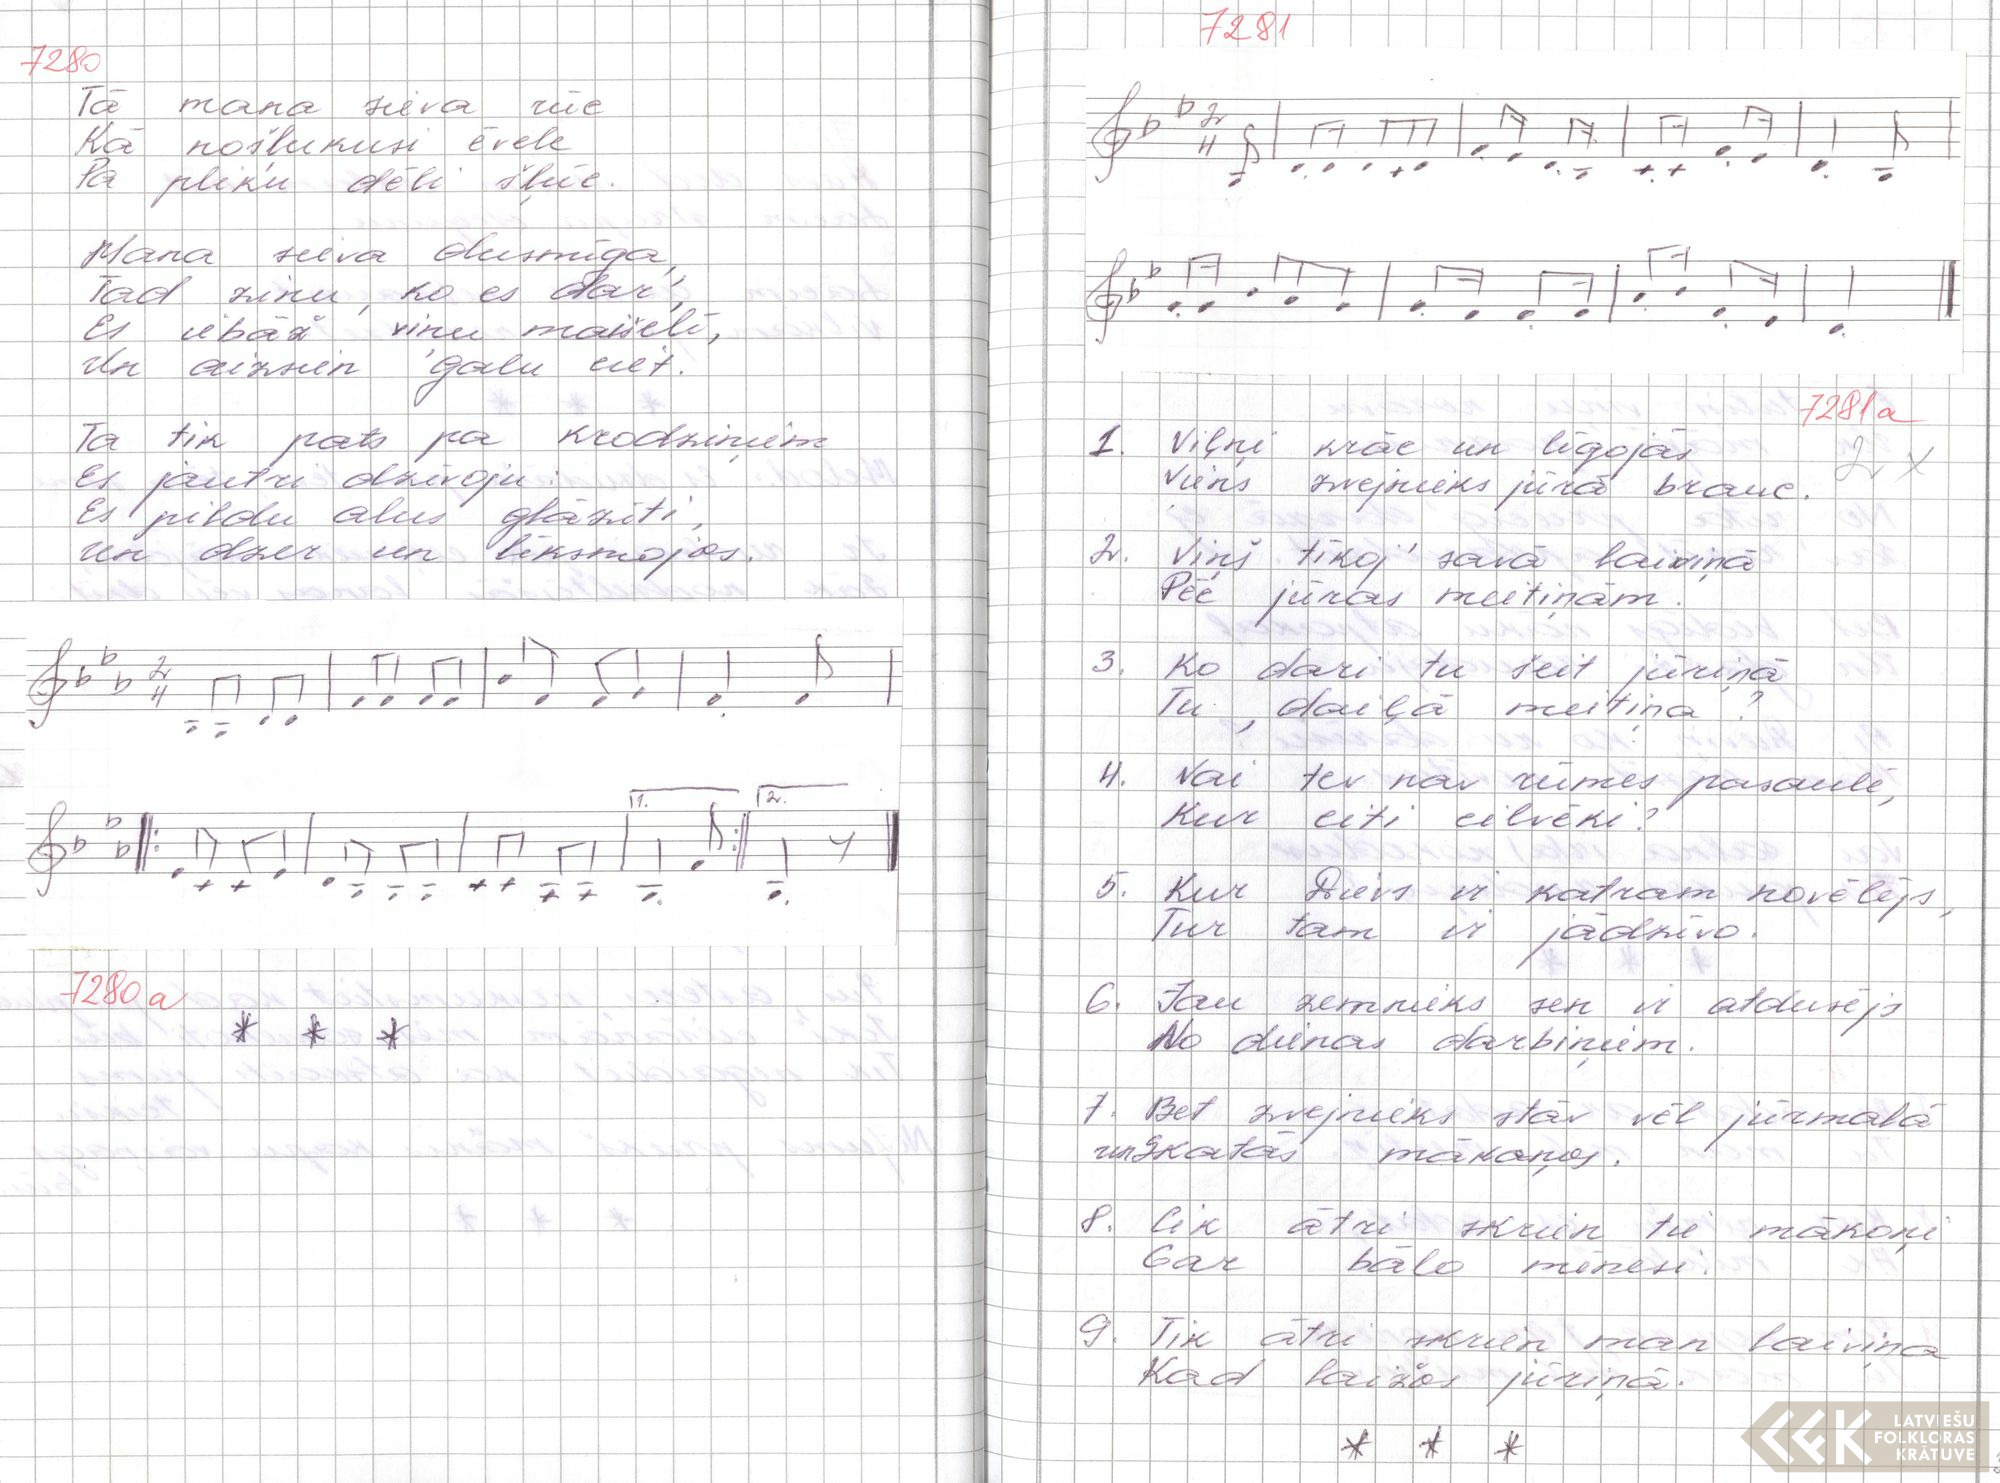 7280
Tā mana sieva rūc
Kā nošlukusi ēvele
Pa pliku dēli šļūc.
Mana sieva dusmīga,
Tad zinu, ko es dar',
Es iebāž viņu maišelī,
Un aizsien galu ciet.
Ta tik pats pa krodziņiem
Es jautri dzīvoju:
Es pildu alus glāzīti,
Un dzer un līksmojos.
2
4
1.
2.
7280a
* * *
7281
2
4
7281a
1. Viļņi krāc un līgojās
Viens zvejnieks jūrā brauc.
2 x
2. Viņš tīkoj' savā laiviņā
Pēc jūras meitiņām.
3. Ko dari tu šeit jūriņā
Tu, daiļā meitiņa?
4. Vai tev nav rūmes pasaulē,
Kur citi cilvēki?
5. Kur Dievs ir katram novēlējs,
Tur tam ir jādzīvo.
6. Jau zemnieks sen ir atdusējs
No dienas darbiņiem.
7. Bet zvejnieks stāv vēl jūrmalā
un Skatās mākoņos.
8. Cik ātri skrien tie mākoņi
Gar bālo mēnesi.
9. Tik ātri skrien man laiviņa
Kad laižos jūriņā.
* * *
LATVIEŠU
FOLKLORAS
KRĀTUVE